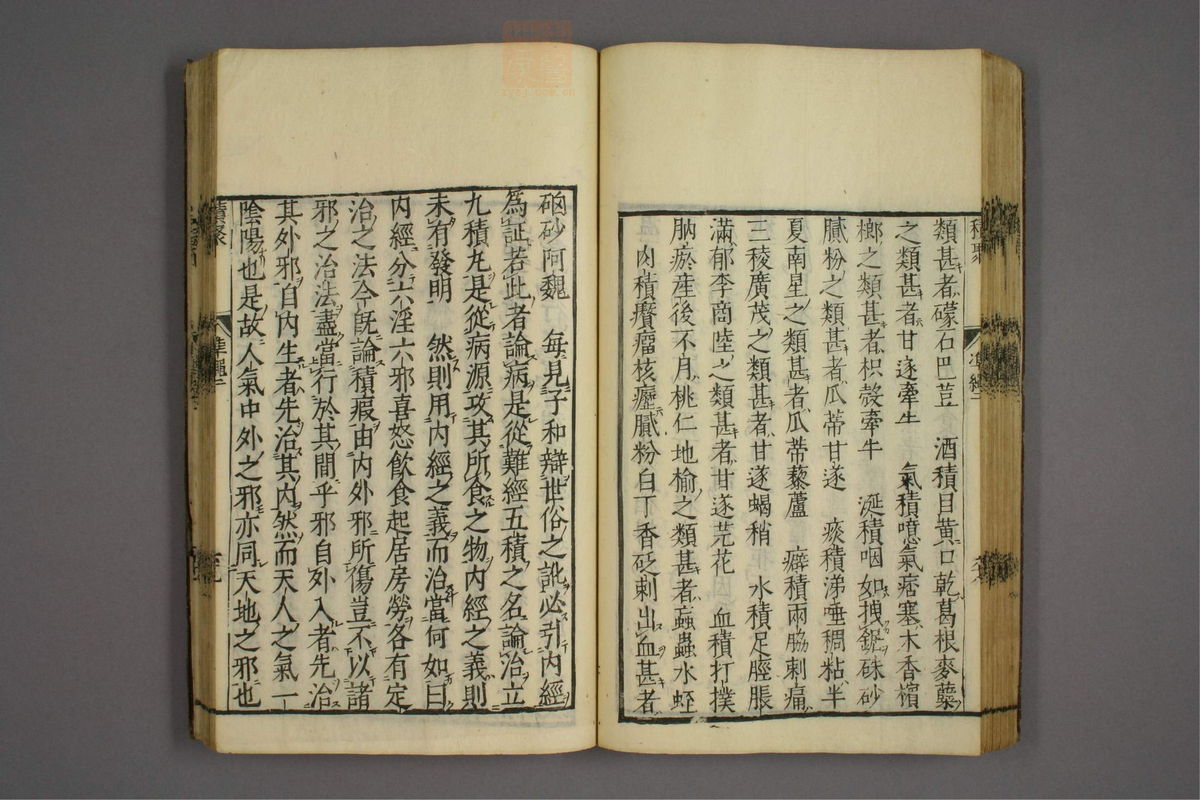 類甚者礞石巴荳　酒積目黄口乾葛根麥蘗
之類甚者甘遂牽牛　氣積噫氣痞塞木香檳
榔之類甚者枳殼牽牛　涎積咽如拽鋸硃砂
膩粉之類甚者瓜蒂甘遂　痰積涕唾稠粘半
夏南星之類甚者瓜蒂藜蘆　癖積兩脇刺痛
三稜廣茂之類甚者甘遂蝎梢　水積足脛脹
滿郁李商陸之類甚者甘遂芫花　血積打撲
肭瘀産後不月桃仁地榆之類甚者蝱蟲水蛭
肉積癭瘤核癧膩粉白丁香砭刺出血甚者
硇砂阿魏　每見子和辯世俗之訛必引内經
爲証若此者論病是從難經五積之名論治立
九積尢是從病源攻其所食之物内經之義則
未有發明　然則用内經之義而治當何如曰
内經分六淫六邪喜怒飲食起居房勞各有定
治之法今既論積瘕由内外邪所傷豈不以諸
邪之治法盡當行於其間乎邪自外入者先治
其外邪自内生者先治其内然而天人之氣一
陰陽也是故人氣中外之邪亦同天地之邪也
積聚
準繩二